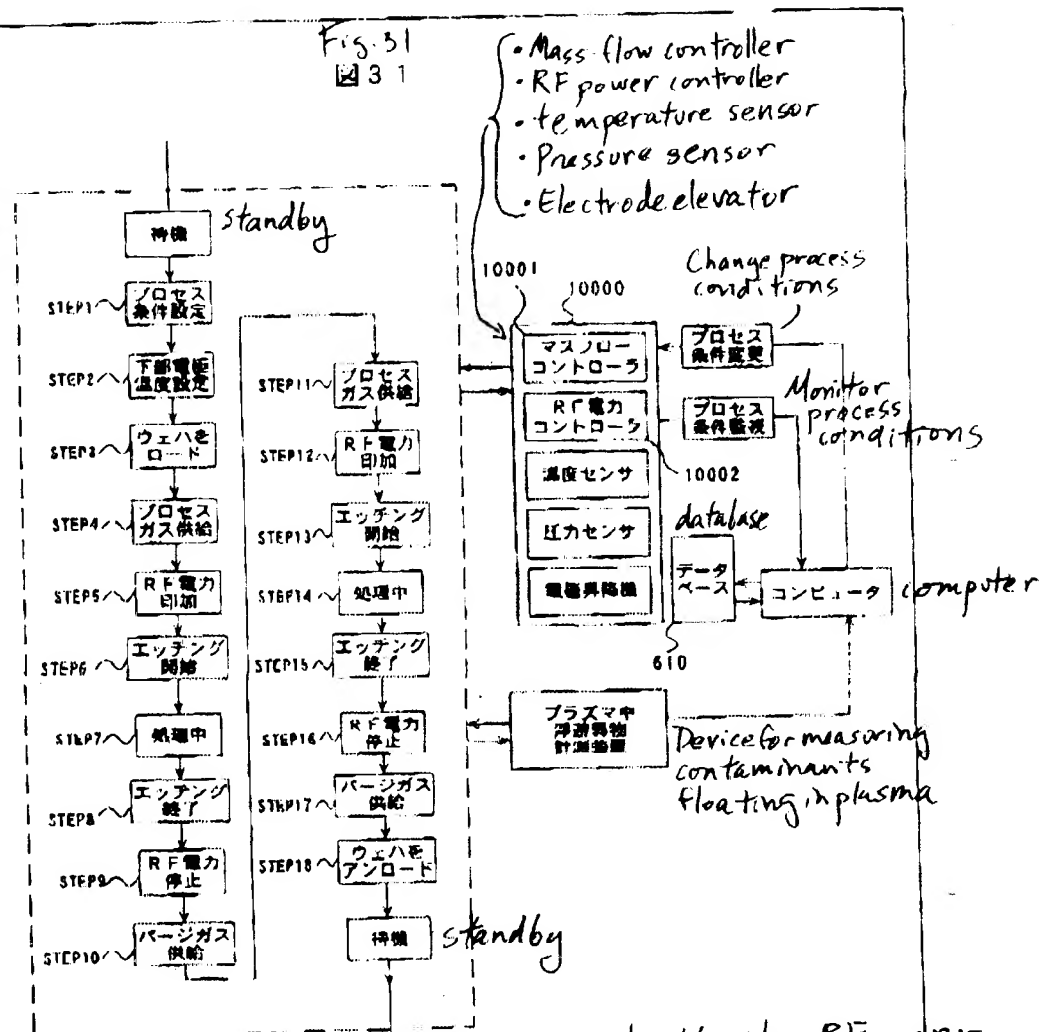 Fig. 31
図31
• Mass flow controller
• RF power controller
• temperature sensor
• Pressure sensor
• Electrode elevator
待機
standby
STEP1
プロセス
条件設定
STEP2
下部電極
温度設定
STEP3
ウェハを
ロード
STEP4
プロセス
ガス供給
STEP5
RF電力
印加
STEP6
エッチング
開始
STEP7
処理中
STEP8
エッチング
終了
STEP9
RF電力
停止
STEP10
パージガス
供給
STEP11
プロセス
ガス供給
STEP12
RF電力
印加
STEP13
エッチング
開始
STEP14
処理中
STEP15
エッチング
終了
STEP16
RF電力
停止
STEP17
パージガス
供給
STEP18
ウェハを
アンロード
待機
standby
10001
10000
マスフロー
コントローラ
RF電力
コントローラ
10002
温度センサ
圧力センサ
電極昇降機
Change process
conditions
プロセス
条件変更
Monitor
process
conditions
プロセス
条件監視
database
データ
ベース
610
コンピュータ
computer
プラズマ中
浮遊異物
計測装置
Device for measuring
contaminants
floating in plasma
RF